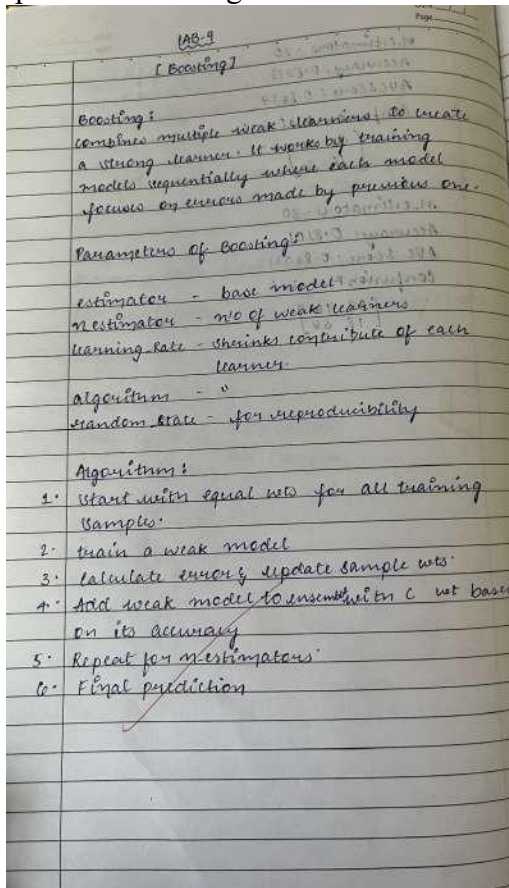 Page
LAB-9
[ Boosting ]
Boosting :
combines multiple weak learners to create
a strong learner. It works by training
models sequentially where each model
focuses on errors made by previous one.
Parameters of Boosting
estimator - base model
n estimator - n'o of weak learners
learning_Rate - shrinks contribute of each
learner.
algorithm - "
random_state - for reproducibility
Algorithm :
1. Start with equal wts for all training
samples.
2. train a weak model
3. Calculate error & update sample wts.
4. Add weak model to ensemble with C wt base
on its accuracy
5. Repeat for n estimators.
6. Final prediction